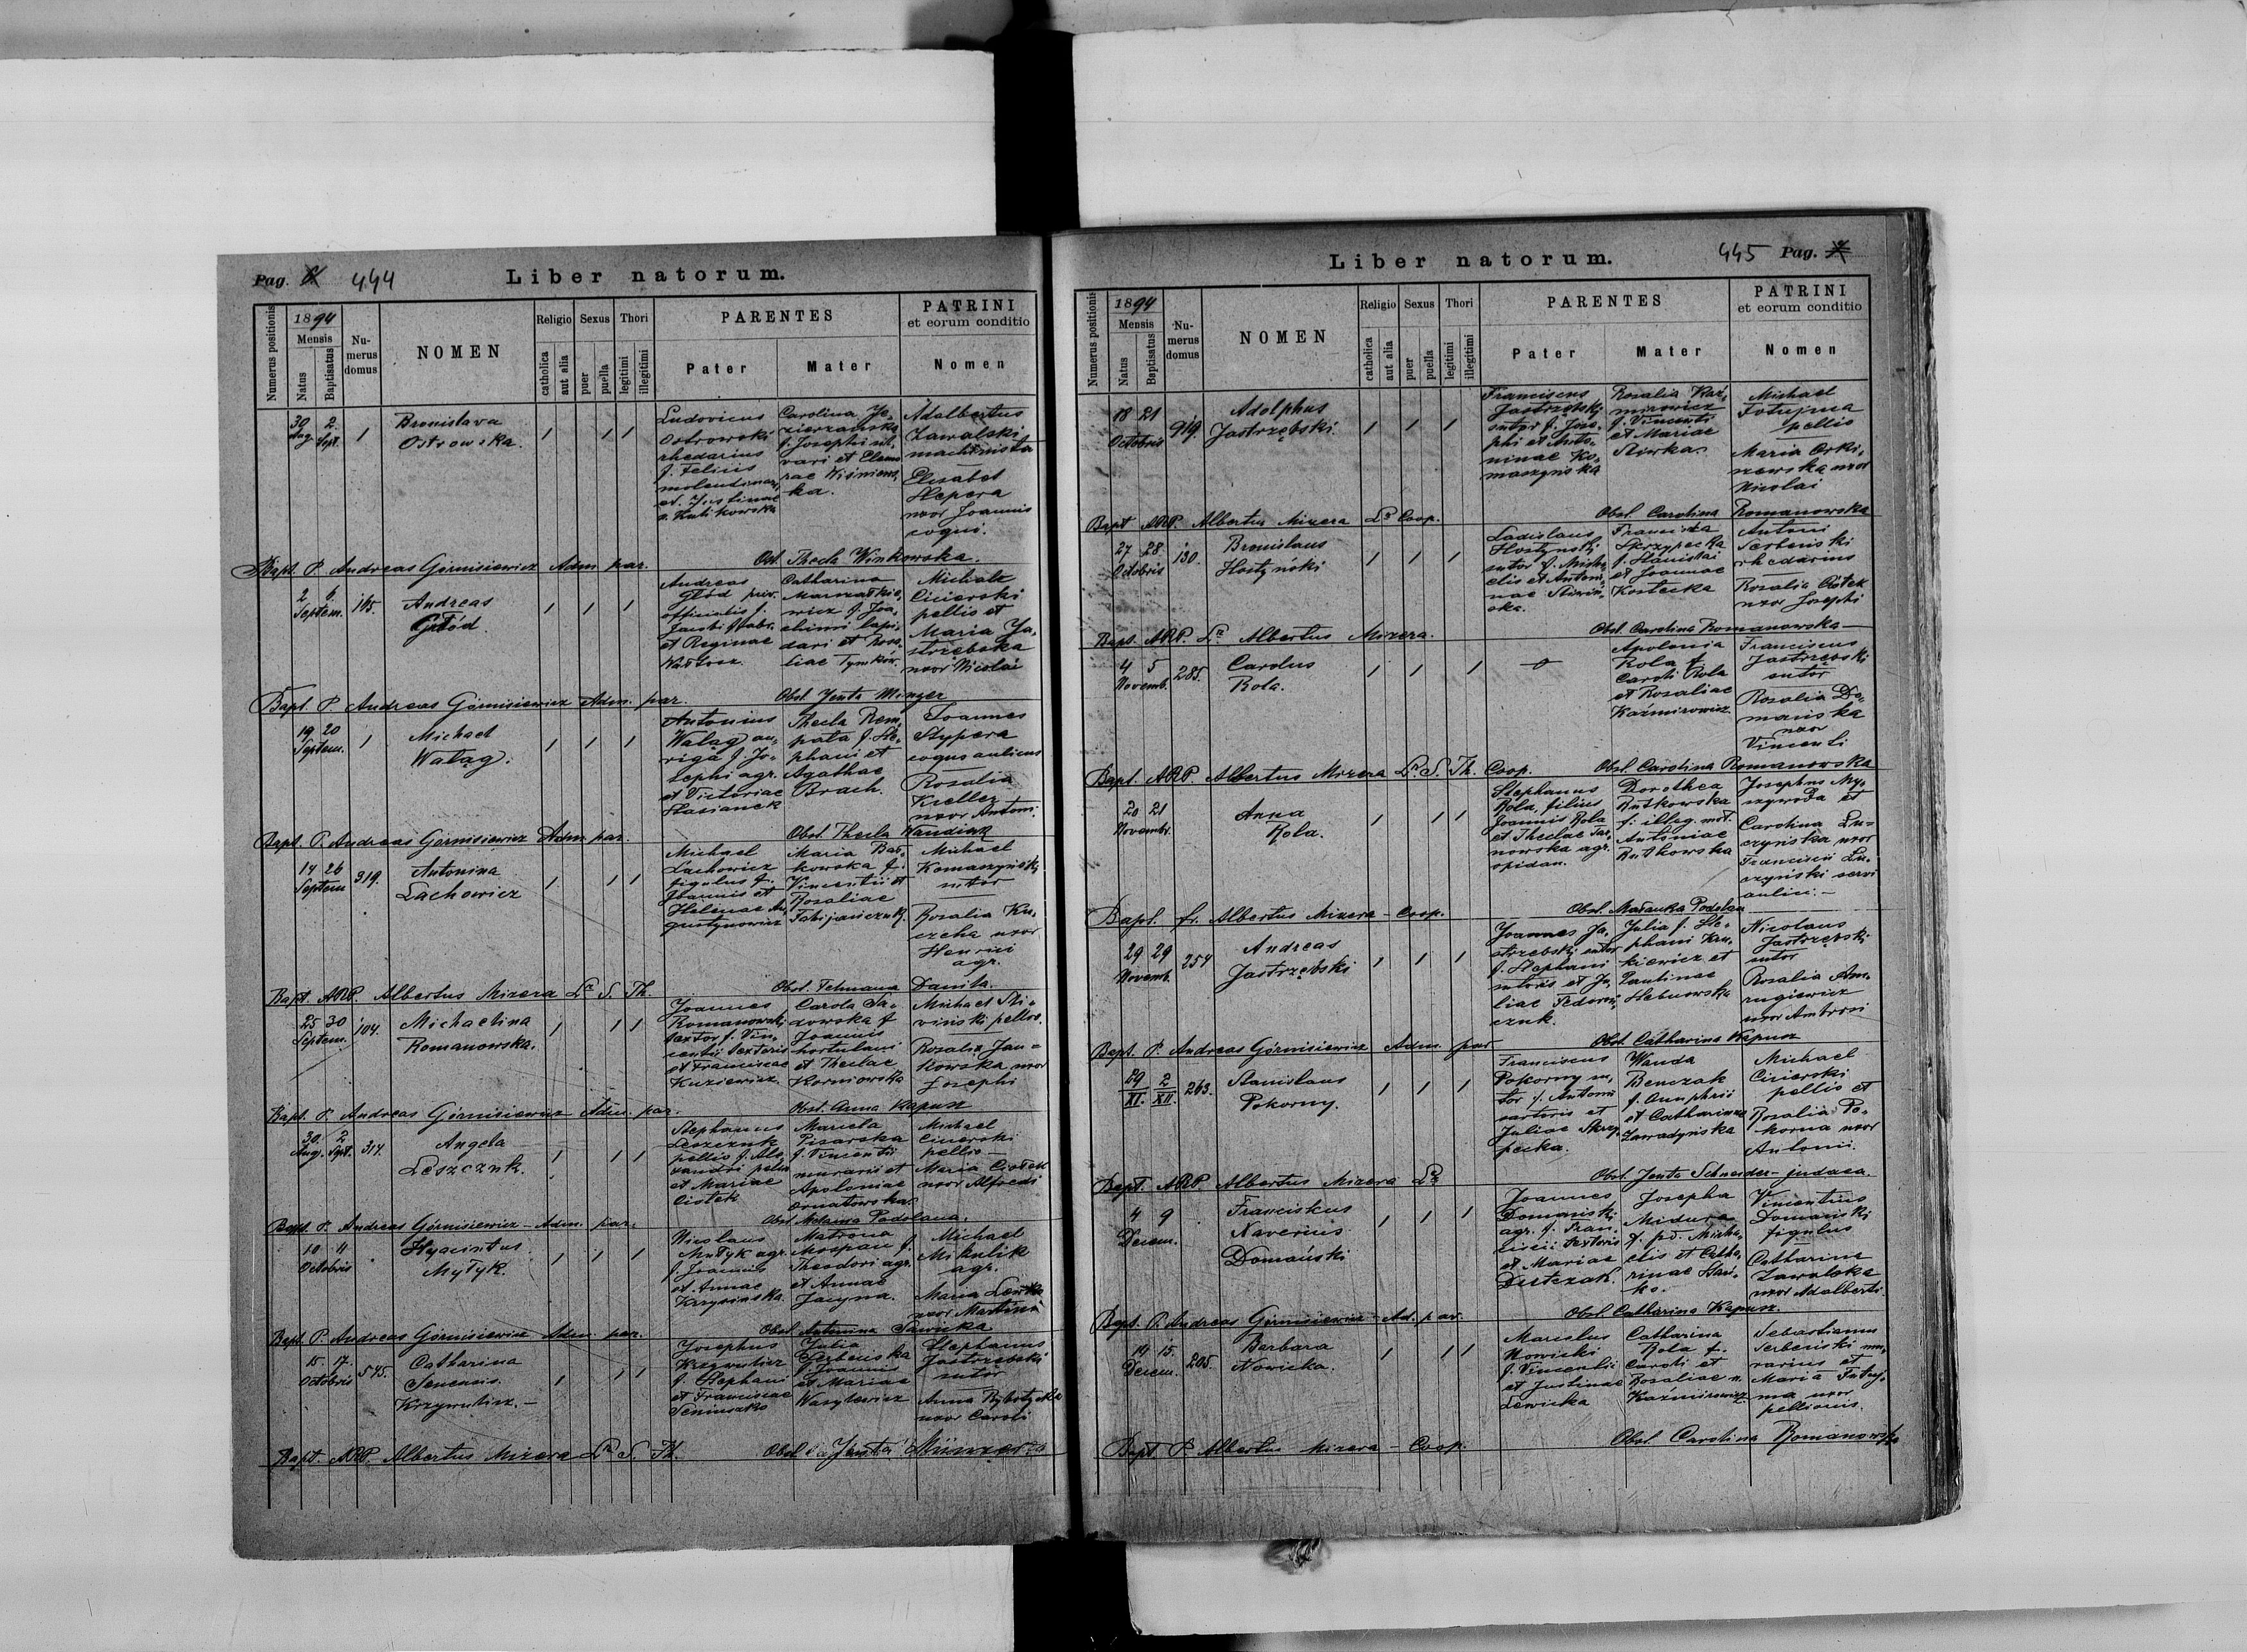 Pag. 444
Liber natorum.
Numerus positionis
1894
Mensis
Natus
Baptisatus
Nu-
merus
domus
NOMEN
Religio
catholica
aut alia
Sexus
puer
puella
Thori
legitimi
illegitimi
PARENTES
Pater
Mater
PATRINI
et eorum conditio
Nomen
30 Aug. 2. Sept. 1
Bronislava
Ostrowska.
Ludovicus
Ostrowski
rhedarius
f. Felicis
molendinar.
et Justinae
Carolina Je-
zierzańska
f. Josephi
et
ka.
Adalbertus
Zawalski
machinista
Elisabet
Stepera
uxor Joannis
coqui.
Bapt. P. Andreas Górnisiewicz Adm. par.
Obst. Thecla Winkowska.
2 6. Septem. 165.
Andreas
Głód.
Andreas
Głód priv.
officialis f.
Jacobi
et Reginae
Catharina
f. Joa-
chimi lapi-
dari et Rosa-
liae
Michael
Cicierski
pellio et
Maria Ja-
strzębska
uxor Nicolai
Bapt. P. Andreas Górnisiewicz Adm. par.
Obst. Jenta Minzer
19 20 Septem. 1
Michael
Watag.
Antonius
Watag au-
riga f. Jo-
sephi agr.
et Victoriae
Stasianek
Thecla Rem-
pała f. Ste-
phani et
Agathae
Brach.
Joannes
Stypera
coquus aulicus
Rosalia
Kreller
uxor Antoni.
Bapt. P. Andreas Górnisiewicz Adm. par.
Obst. Thecla
14 26 Septem 319.
Antonina
Lachowicz
Michael
Lachowicz
figulus f.
Joannis et
Helenae Au-
gustynowicz
Maria Bat-
kowska f.
Vincentii et
Rosaliae
Fabijańczuk.
Michael
Komaszyński
sutor
Rosalia Ku-
czcha uxor
Henrici
agr.
Bapt. ARP. Albertus Mizera Lr. S. Th.
Obst. Tetmana Danita.
25 30 Septem. 104.
Michaelina
Romanowska.
Joannes
Romanowski
textor f. Vin-
centii textoris
et Franciscae
Kuziewicz.
Carola Sa-
dowska f.
Joannis
hortulani
et Theclae
Korniowska
Michael Sli-
wiński pellio.
Rosalia Jan-
kowska uxor
Josephi
Bapt. P. Andreas Górnisiewicz Adm. par.
Obst. Anna Kapusz
30. Aug. 2 Sept. 317.
Angela
Leszczuk.
Stephanus
Leszczuk
pellio f. Ale-
xandri
et Mariae
Ciołek
Mariela
Pisarska
f. Vincentii
murarii et
Apoloniae
Ornatowska
Michael
Cicierski
pellio
Maria Ciołek
uxor Alfredi
Bapt. P. Andreas Górnisiewicz - Adm. par.
Obst. Podolana.
10 11 Octobris
Hyacintus
Mytyk.
Nicolaus
Mytyk agr.
f. Joannis
et Annae
Matrona
Mospan f.
Theodori agr.
et Annae
Jacyna.
Michael
Mikulik
agr.
Maria
uxor Martini
Bapt. P. Andreas Górnisiewicz Adm. par.
Obst. Antonina Sawicka
15. 17. Octobris 545.
Catharina
Senensis
Krzywulicz. -
Josephus
Krzywulicz
f. Stephani
et Franciscae
Seniuszko
Julia
Gerbeńska
f. Joannis
et Mariae
Wasylewicz
Stephanus
Jastrzębski
sutor
Anna Rybotycka
uxor Caroli
Bapt. ARP. Albertus Mizera Lr. S. Th.
Obst. Jenta Münzer
Liber natorum.
445 Pag.
Numerus positionis
1894
Mensis
Natus
Baptisatus
Nu-
merus
domus
NOMEN
Religio
catholica
aut alia
Sexus
puer
puella
Thori
legitimi
illegitimi
PARENTES
Pater
Mater
PATRINI
et eorum conditio
Nomen
18 21 Octobris 919.
Adolphus
Jastrzębski.
Franciscus
Jastrzębski
sutor f. Jose-
phi et Anto-
ninae Ko-
maszyńska
Rosalia Kaź-
mirowicz
f. Vincenti
et Mariae
Sliwka.
Michael
Fotujma
pellio
Maria
uxor
Nicolai
Bapt ARP. Albertus Mizera Lr Coop.
Obst. Carolina Romanowska
27 28 Octobris 130.
Bronislaus
Hostyński
Ladislaus
Hostyński
sutor f. Micha-
elis et Antoni-
nae Sliwiń-
ska.
Francisca
Skrzypecka
f. Stanislai
et Joannae
Kostecka
Antoni
Serbeński
rhedarius
Rosalia Ciołek
uxor Josephi
Bapt. ARP. Lr. Albertus Mizera.
Obst. Carolina Romanowska -
4 5 Novemb. 285.
Carolus
Rola.
Apolonia
Rola f.
Caroli Rola
et Rosaliae
Kaźmirowicz.
Franciscus
Jastrzębski
sutor
Rosalia Do-
mańska
uxor
Vincenti
Bapt. ARP. Albertus Mizera Lr S. Th. Coop.
Obst. Carolina Romanowska
20 21 Novembr.
Anna
Rola.
Stephanus
Rola, filius
Joannis Rola
et Theclae Tar-
nowska agr.
opidan.
Dorothea
Rutkowska
f. illeg. mat.
Antoniae
Rutkowska
Josephus
et
Carolina Lu-
czyńska uxor
Francisci Lu-
czyński servi
aulici. -
Bapt. fr. Albertus Mizera - Coop.
Obst. Malanka Podolan
29 29 Novemb. 254
Andreas
Jastrzębski
Joannes Ja-
strzębski sutor
f. Stephani
sutoris et Ju-
liae Fedorni-
czuk.
Julia f. Ste-
phani Kru-
kiewicz et
Paulinae
Stebnowska
Nicolaus
Jastrzębski
sutor
Rosalia
uxor Ambrosi
Bapt. P. Andreas Górnisiewicz Adm. par
Obst. Catharina Kapusz
29 XI. 2 XII. 263.
Stanislaus
Pokorny.
Franciscus
Pokorny su-
tor f. Antoni
sartoris et
Juliae Skrzy-
pecka.
Wanda
Benczak
f. Onuphrii
et Catharinae
Zawadyńska
Michael
Cicierski
pellio et
Rosalia Po-
korna uxor
Antonii.
Bapt. ARP. Albertus Mizera Lr
Obst. Jenta Schneider - judaea.
4 9 Decem.
Franciskus
Xaverius
Domański
Joannes
Domański
agr. f. Fran-
cisci textoris
et Mariae
Dustczak.
Josepha
Midura
f. Micha-
elis et Catha-
rinae Stań-
ko.
Vincentius
Domański
figulus
Catharine
Zawalska
uxor Adalberti
Bapt. P. Andreas Górnisiewicz - Ad. par.
Obst. Catharina Kapusz.
14 15. Decem. 205.
Barbara
Nowicka.
Marcelus
Nowicki
f. Vincentii
et Justinae
Lewicka
Catharina
Rola f.
Caroli et
Rosaliae n.
Kaźmirowicz.
Sebastianus
Serbeński mu-
rarius et
Maria Futuj-
ma uxor
pellionis.
Bapt. P. Albertus Mizera - Coop.
Obst. Carolina Romanowska